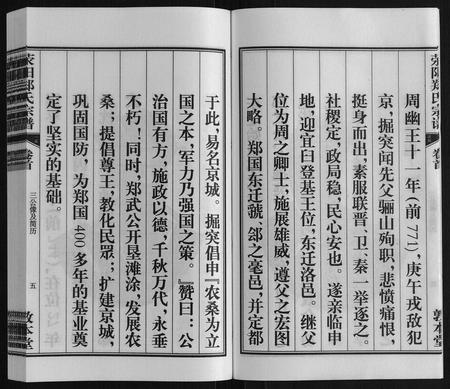 荥阳郑氏宗谱
卷首
敦本堂
周幽王十一年(前771),庚午戎敌犯
京,掘突闻先父骊山殉职,悲愤痛恨,
挺身而出,素服联晋、卫、秦一举逐之。
社稷定,政局稳,民心安也。遂亲临申
地,迎宜臼登基王位,东迁洛邑。继父
位为周之卿士,施展雄威,遵父之宏图
大略。郑国东迁虢、郐之毫邑,并定都
于此,易名京城。掘突倡申『农桑为立
国之本,军力乃强国之策。』赞曰:公
治国有方,施政以德,千秋万代,永垂
不朽!同时,郑武公开垦滩涂,发展农
桑;提倡尊王,教化民眾;扩建京城,
巩固国防,为郑国400多年的基业奠
定了坚实的基础。
荥阳郑氏宗谱
卷首
三公像及简历
五
敦本堂